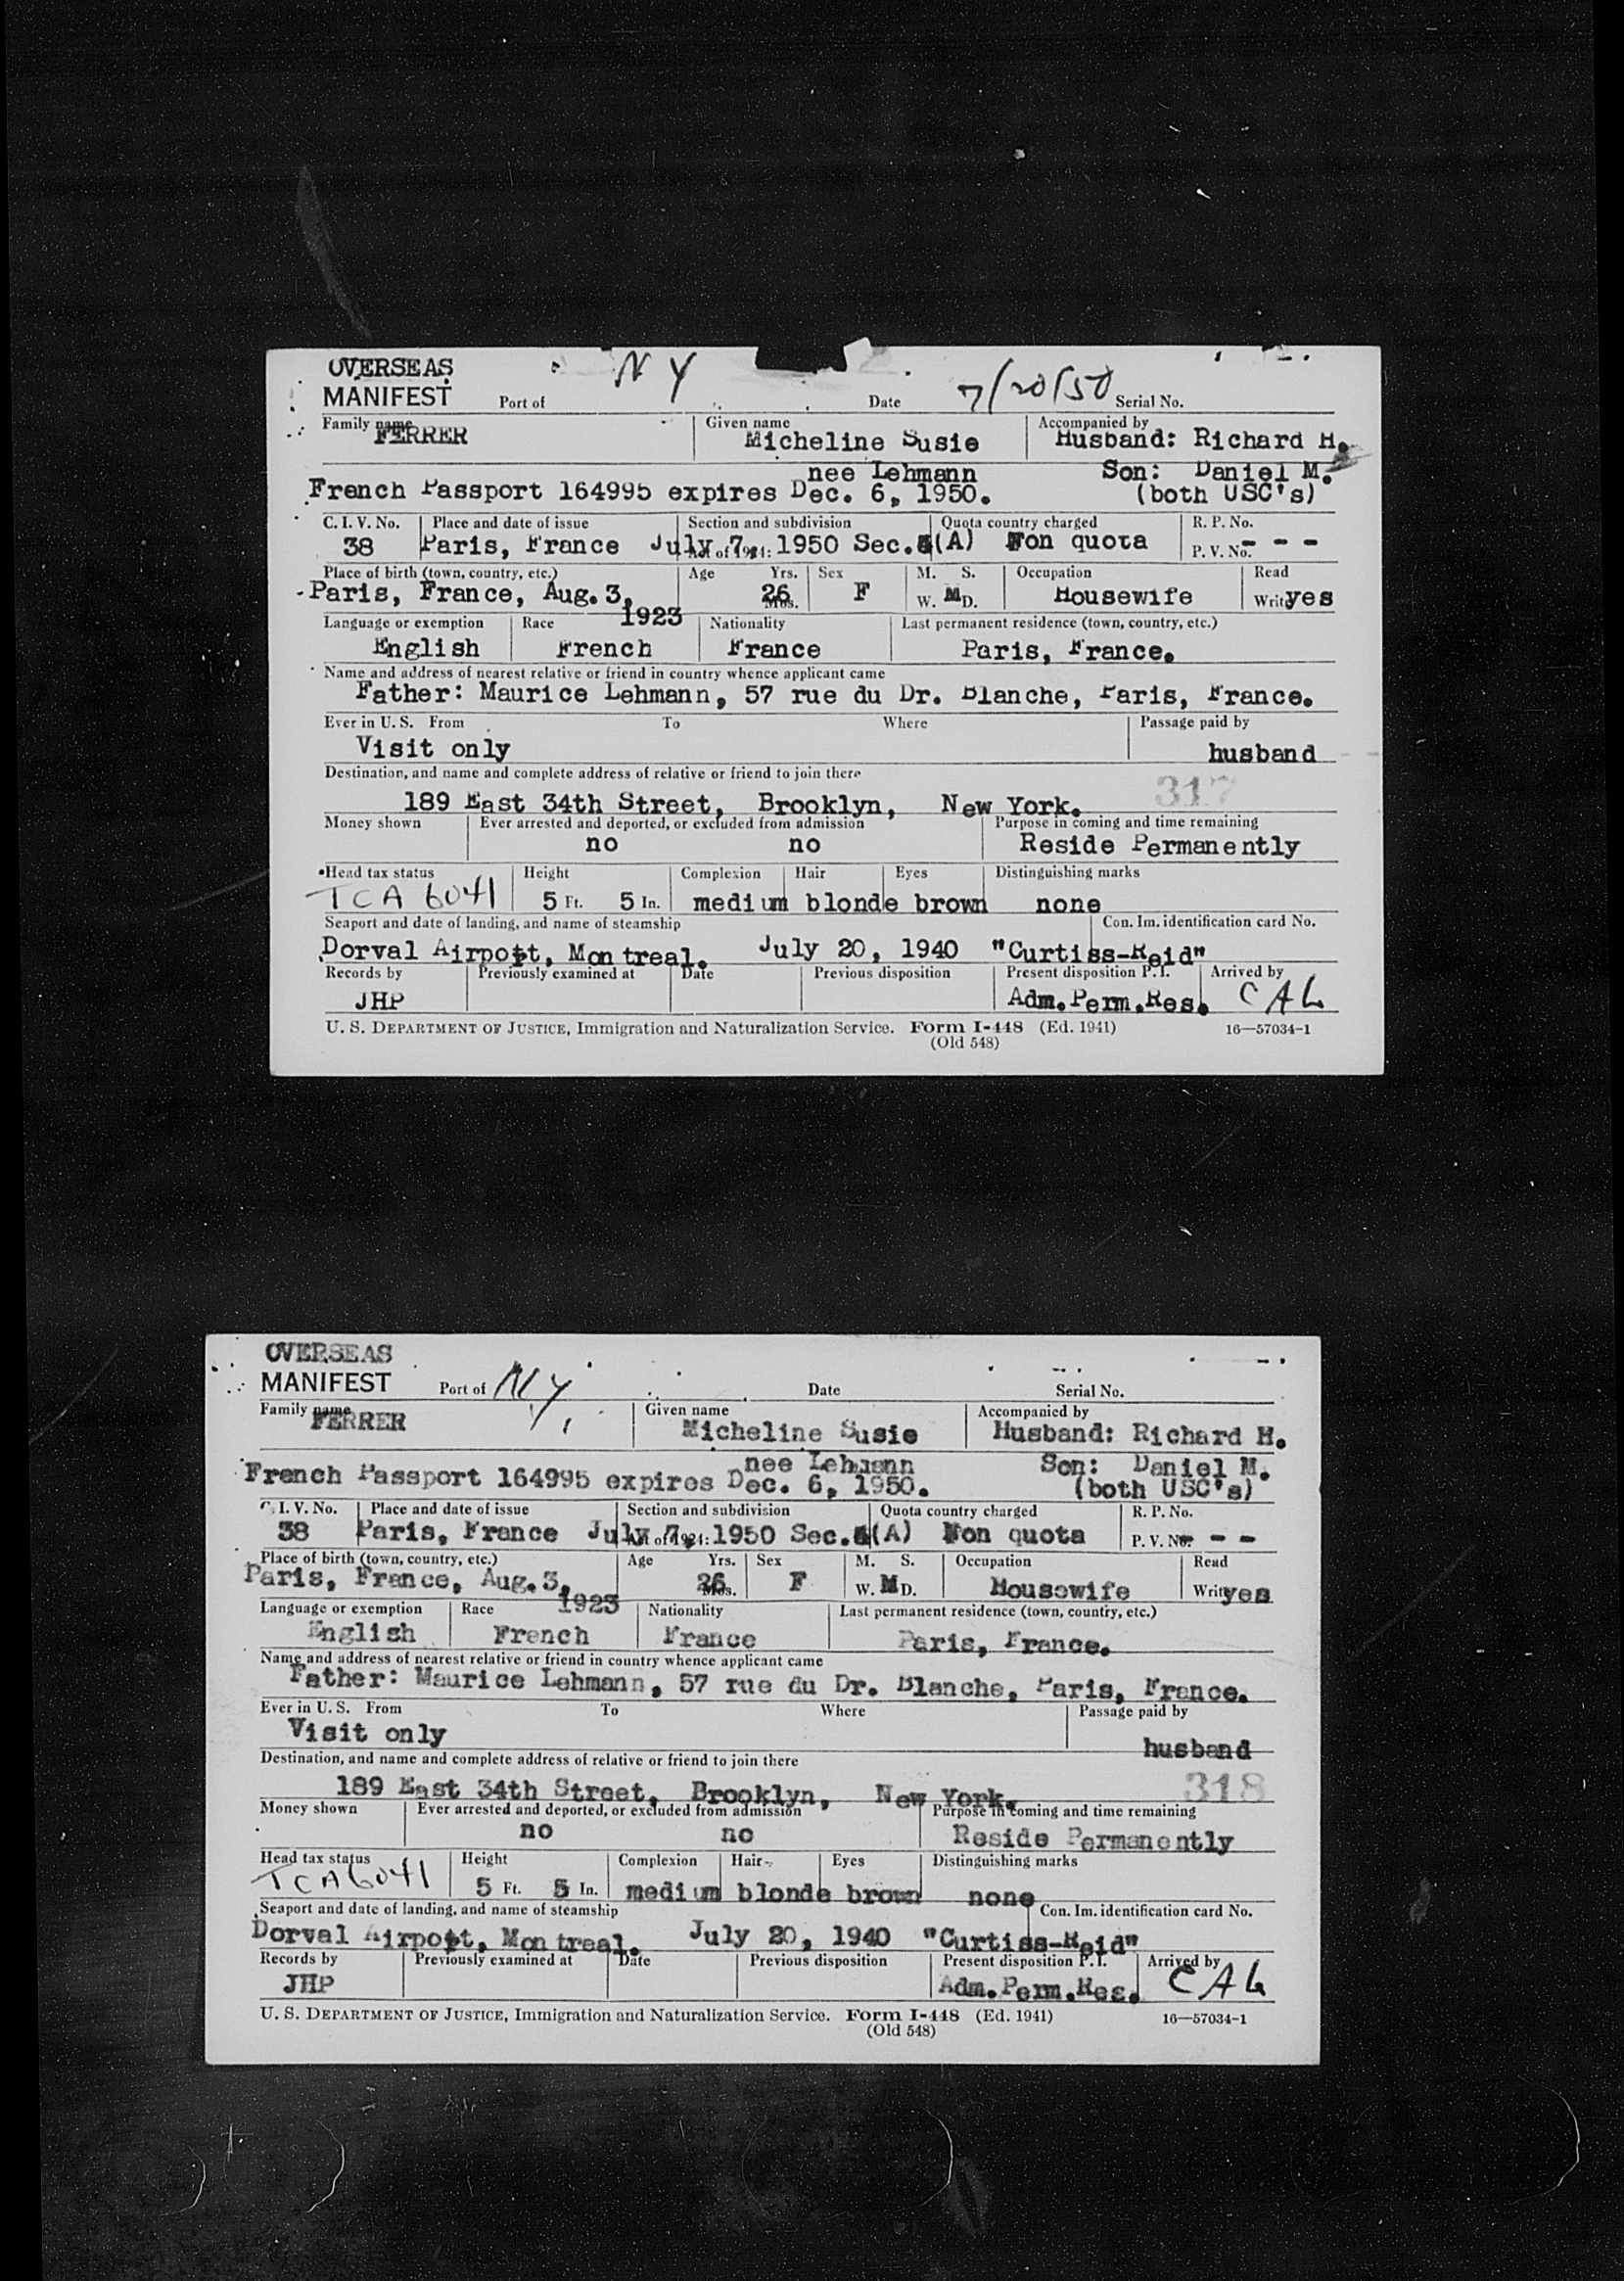 OVERSEAS
MANIFEST Port of N Y Date 7/20/50 Serial No.
Family name FERRER Given name Micheline Susie Accompanied by Husband: Richard H.
nee Lehmann Son: Daniel M.
French Passport 164995 expires Dec. 6, 1950. (both USC's)
C. I. V. No. Place and date of issue Section and subdivision Quota country charged R. P. No.
38 Paris, France July 7, 1950 Sec. (A) Non quota P. V. No. - - -
Act of 1924:
Place of birth (town, country, etc.) Age Yrs. Sex M. S. Occupation Read
Paris, France, Aug. 3, 1923 26 Mos. F W. M D. Housewife Write yes
Language or exemption Race Nationality Last permanent residence (town, country, etc.)
English French France Paris, France.
Name and address of nearest relative or friend in country whence applicant came
Father: Maurice Lehmann, 57 rue du Dr. Blanche, Paris, France.
Ever in U. S. From To Where Passage paid by
Visit only husband
Destination, and name and complete address of relative or friend to join there
317
189 East 34th Street, Brooklyn, New York.
Money shown Ever arrested and deported, or excluded from admission Purpose in coming and time remaining
no no Reside Permanently
Head tax status Height Complexion Hair Eyes Distinguishing marks
TCA 6041 5 Ft. 5 In. medium blonde brown none
Seaport and date of landing, and name of steamship Con. Im. identification card No.
Dorval Airpott, Montreal. July 20, 1940 "Curtiss-Reid"
Records by Previously examined at Date Previous disposition Present disposition P. I. Arrived by
JHP Adm.Perm.Res. CAL
U. S. DEPARTMENT OF JUSTICE, Immigration and Naturalization Service. Form I-448 (Ed. 1941) 16—57034-1
(Old 548)
OVERSEAS
MANIFEST Port of N Y Date Serial No.
Family name FERRER Given name Micheline Susie Accompanied by Husband: Richard H.
nee Lehmann Son: Daniel M.
French Passport 164995 expires Dec. 6, 1950. (both USC's)
C. I. V. No. Place and date of issue Section and subdivision Quota country charged R. P. No.
38 Paris, France July 7, 1950 Sec. (A) Non quota P. V. No. - - -
Act of 1924:
Place of birth (town, country, etc.) Age Yrs. Sex M. S. Occupation Read
Paris, France, Aug. 3, 1923 26 Mos. F W. M D. Housewife Write yes
Language or exemption Race Nationality Last permanent residence (town, country, etc.)
English French France Paris, France.
Name and address of nearest relative or friend in country whence applicant came
Father: Maurice Lehmann, 57 rue du Dr. Blanche, Paris, France.
Ever in U. S. From To Where Passage paid by
Visit only husband
Destination, and name and complete address of relative or friend to join there
189 East 34th Street, Brooklyn, New York. 318
Money shown Ever arrested and deported, or excluded from admission Purpose in coming and time remaining
no no Reside Permanently
Head tax status Height Complexion Hair Eyes Distinguishing marks
TCA 6041 5 Ft. 5 In. medium blonde brown none
Seaport and date of landing, and name of steamship Con. Im. identification card No.
Dorval Airpott, Montreal. July 20, 1940 "Curtiss-Reid"
Records by Previously examined at Date Previous disposition Present disposition P. I. Arrived by
JHP Adm.Perm.Res. CAL
U. S. DEPARTMENT OF JUSTICE, Immigration and Naturalization Service. Form I-448 (Ed. 1941) 16—57034-1
(Old 548)